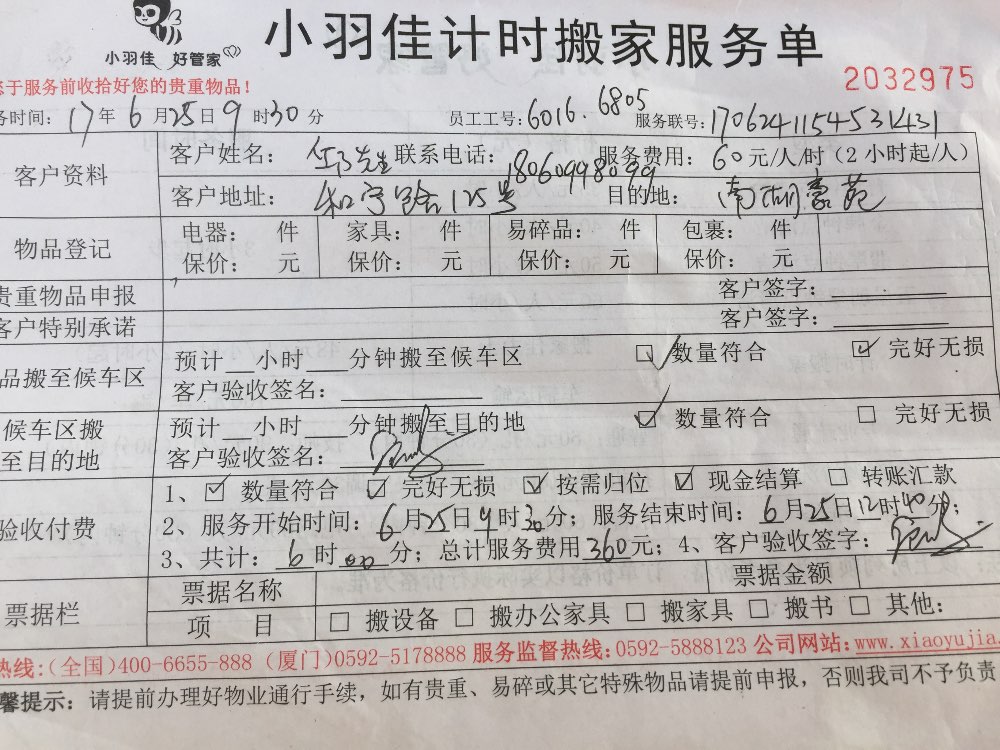 小羽佳 好管家
小羽佳计时搬家服务单
您于服务前收拾好您的贵重物品!
2032975
务时间: 17年6月25日9时30分 员工工号: 6016. 6805 服务联号: 1706241154531431
客户资料
客户姓名: 邹先生 联系电话: 18060998099 服务费用: 60元/人/时(2小时起/人)
客户地址: 和宁路125号 目的地: 南湖豪苑
物品登记
电器: 件 家具: 件 易碎品: 件 包裹: 件
保价: 元 保价: 元 保价: 元 保价: 元
贵重物品申报 客户签字:
客户特别承诺 客户签字:
品搬至候车区
预计__小时___分钟搬至候车区 ☑ 数量符合 ☑ 完好无损
客户验收签名:
候车区搬
至目的地
预计__小时___分钟搬至目的地 ☑ 数量符合 □ 完好无损
客户验收签名:
验收付费
1、☑ 数量符合 ☑ 完好无损 ☑ 按需归位 ☑ 现金结算 □ 转账汇款
2、服务开始时间: 6月25日9时30分; 服务结束时间: 6月25日12时40分;
3、共计: 6时00分; 总计服务费用360元; 4、客户验收签字:
票据栏
票据名称 票据金额
项 目 □ 搬设备 □ 搬办公家具 □ 搬家具 □ 搬书 □ 其他:
热线:(全国)400-6655-888 (厦门)0592-5178888 服务监督热线:0592-5888123 公司网站:www.xiaoyujia.
馨提示: 请提前办理好物业通行手续, 如有贵重、易碎或其它特殊物品请提前申报, 否则我司不予负责